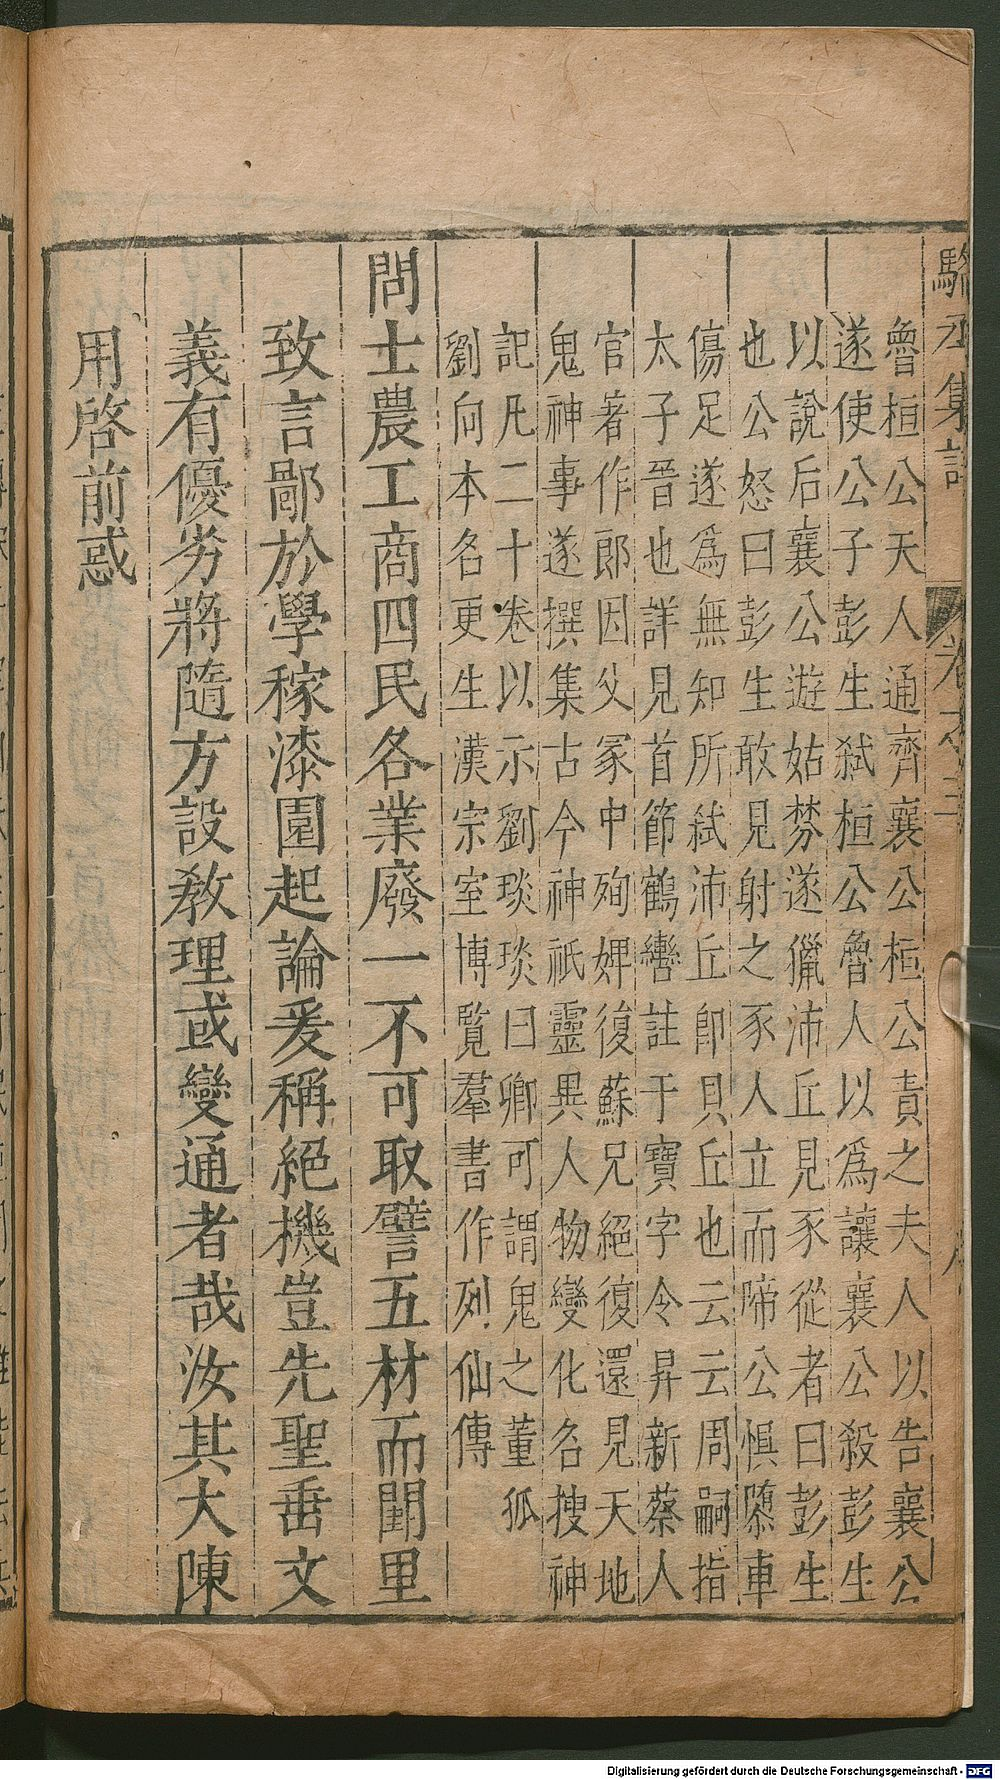 駱丞集註 卷之三 八
魯桓公夫人通齊襄公桓公責之夫人以告襄公
遂使公子彭生弒桓公魯人以為讓襄公殺彭生
以說后襄公遊姑棼遂獵沛丘見豕從者曰彭生
也公怒曰彭生敢見射之豕人立而啼公懼隳車
傷足遂爲無知所弒沛丘卽貝丘也云云周嗣指
太子晉也詳見首節鶴轡註于寶字令昇新蔡人
官著作郎因父冢中殉婢復蘇兄絕復還見天地
鬼神事遂撰集古今神祇靈異人物變化名搜神
記凡二十卷以示劉琰琰曰卿可謂鬼之董狐
劉向本名更生漢宗室博覽羣書作列仙傳
問士農工商四民各業廢一不可取譬五材而閭里
致言鄙於學稼漆園起論爰稱絕機豈先聖垂文
義有優劣將隨方設教理或變通者哉汝其大陳
用啓前惑
Digitalisierung gefördert durch die Deutsche Forschungsgemeinschaft - DFG